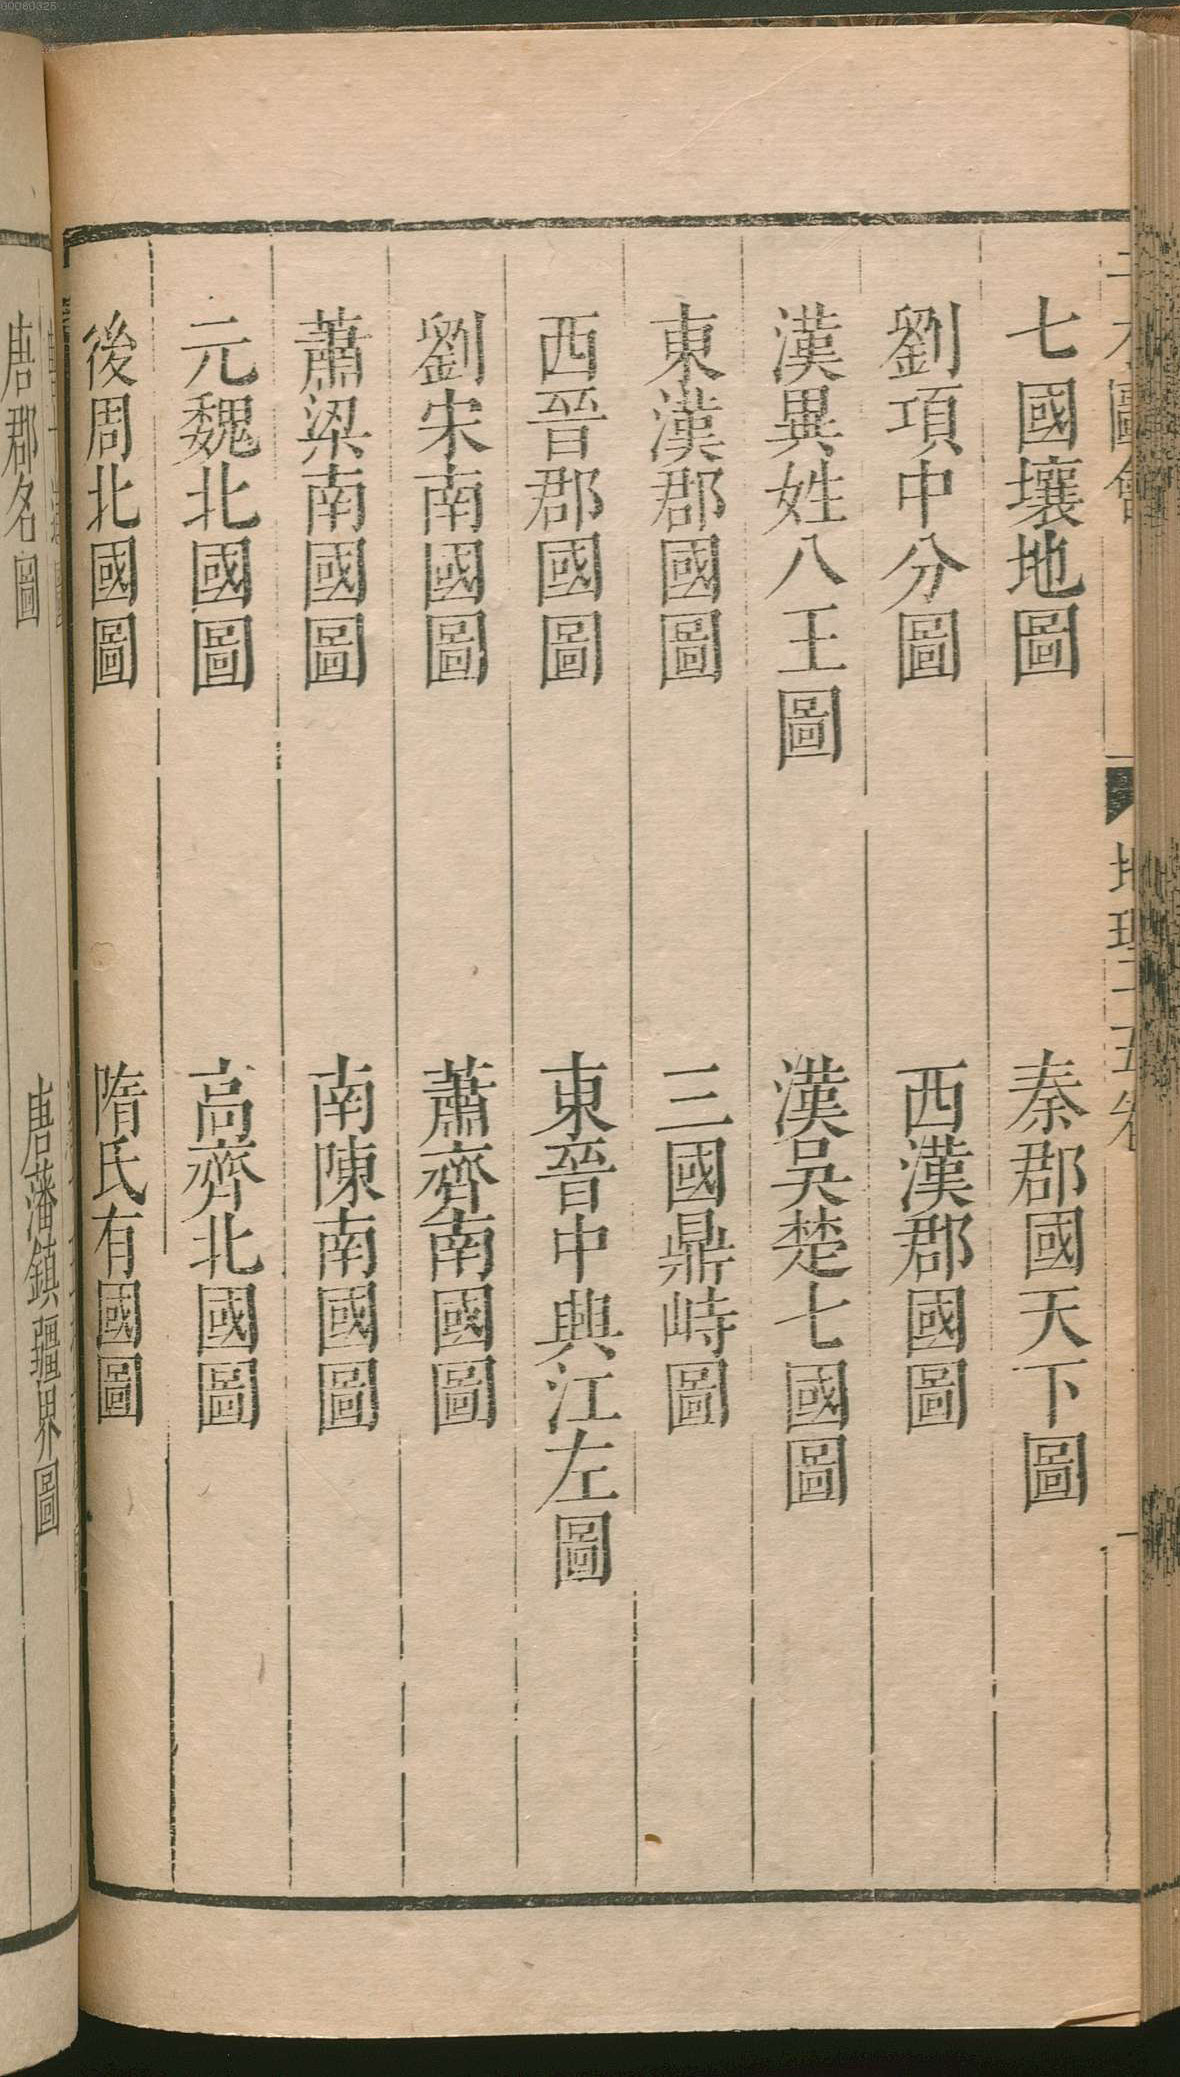 七國壤地圖
秦郡國天下圖
劉項中分圖
西漢郡國圖
漢異姓八王圖
漢吳楚七國圖
東漢郡國圖
三國鼎峙圖
西晉郡國圖
東晉中興江左圖
劉宋南國圖
蕭齊南國圖
蕭梁南國圖
南陳南國圖
元魏北國圖
高齊北國圖
後周北國圖
隋氏有國圖
唐郡名圖
唐藩鎮疆界圖
00060325